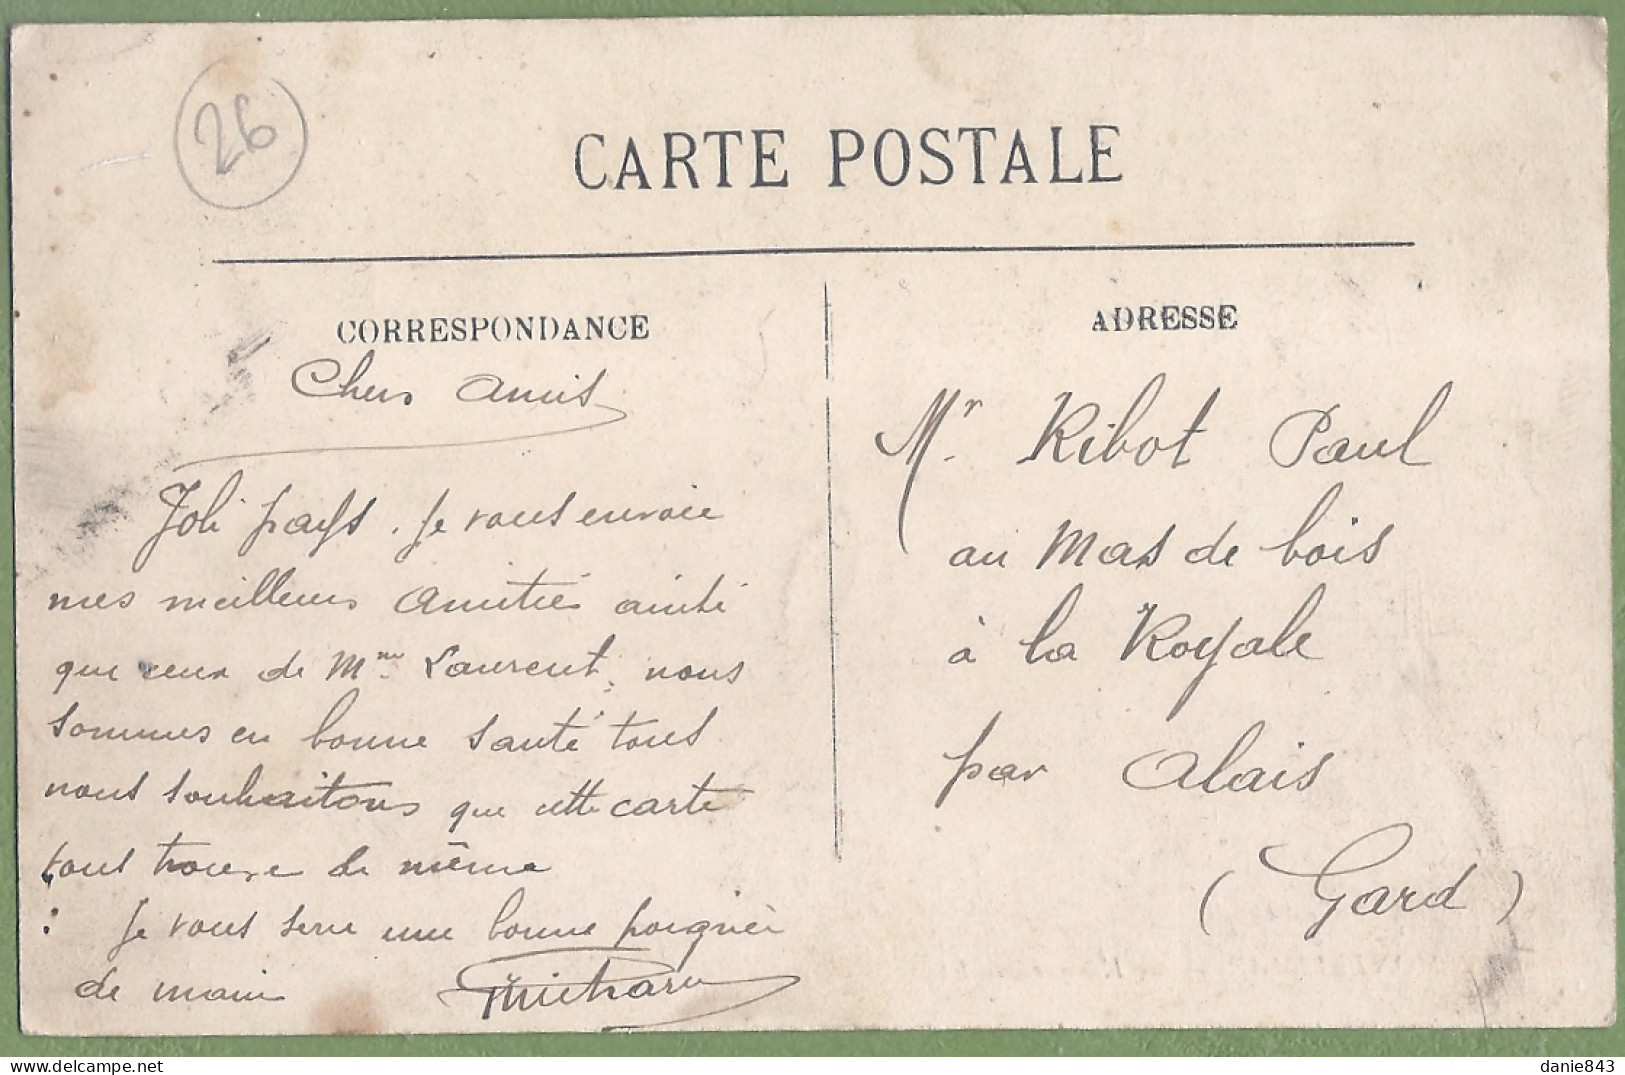 26
CARTE POSTALE
CORRESPONDANCE
Chers Amis
Joli pays. Je vous envoie
mes meilleurs Amitiés ainsi
que ceux de Mme Laurent, nous
sommes en bonne santé tous
nous souhaitons que cette carte
vous trouve de même
Je vous serre une bonne poignée
de main
ADRESSE
Mr. Ribot Paul
au Mas de bois
à la Royale
par Alais
(Gard)
danie843